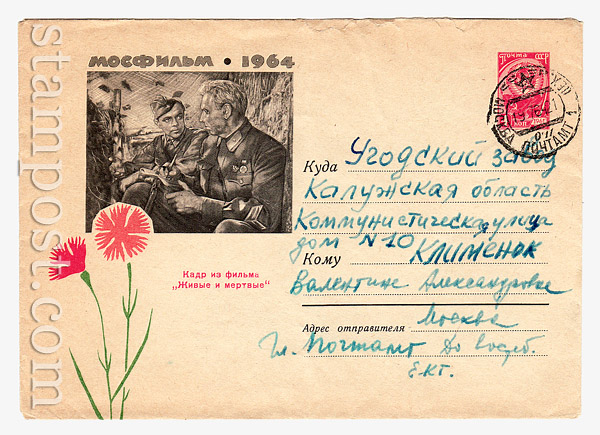 stampost.com
МОСФИЛЬМ • 1964
ПОЧТА СССР
КОП
МОСКВА ПОЧТАМТ 1
Куда Угодский завод
Калужская область
Коммунистическая улица
дом N 10
Кому Клименок
Валентине Александровне
Кадр из фильма
„Живые и мертвые“
Адрес отправителя Москва
Гл. Почтамт До востреб.
Е.К.Г.